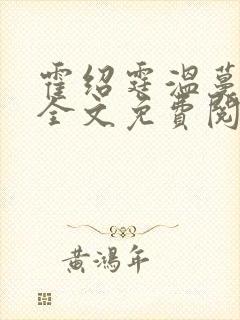 霍绍霆温蔓
全文免费阅
黄鸿年